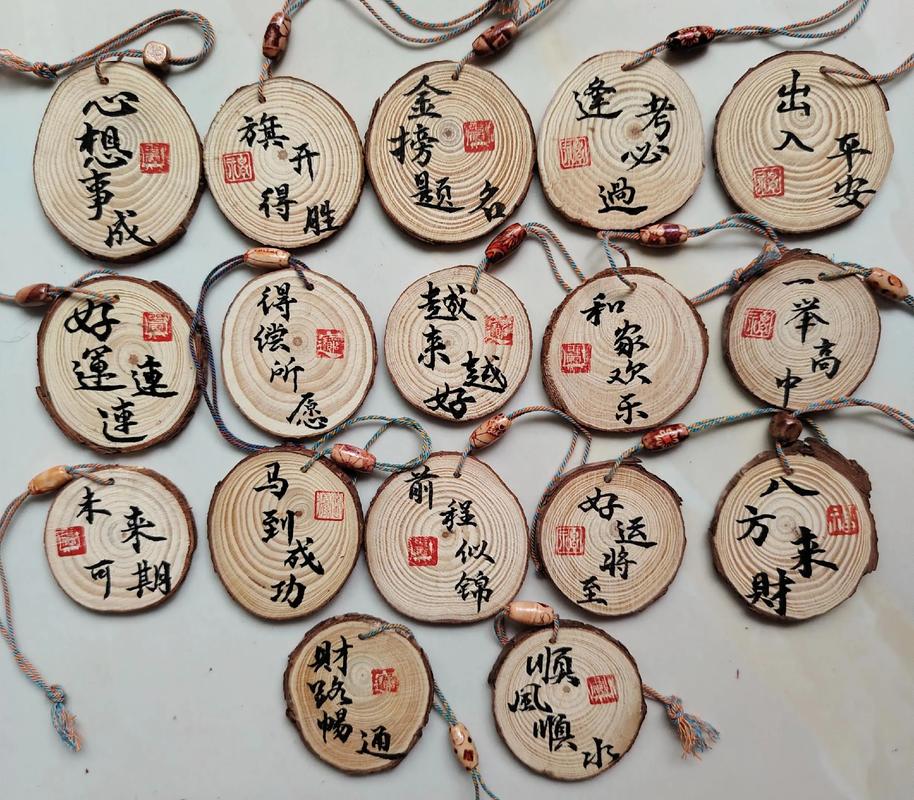 心想事成
旗开得胜
金榜题名
逢考必過
出入平安
好運連連
得偿所愿
越来越好
和家欢乐
一举高中
未来可期
马到成功
前程似锦
好运將至
八方来財
財路暢通
順風順水